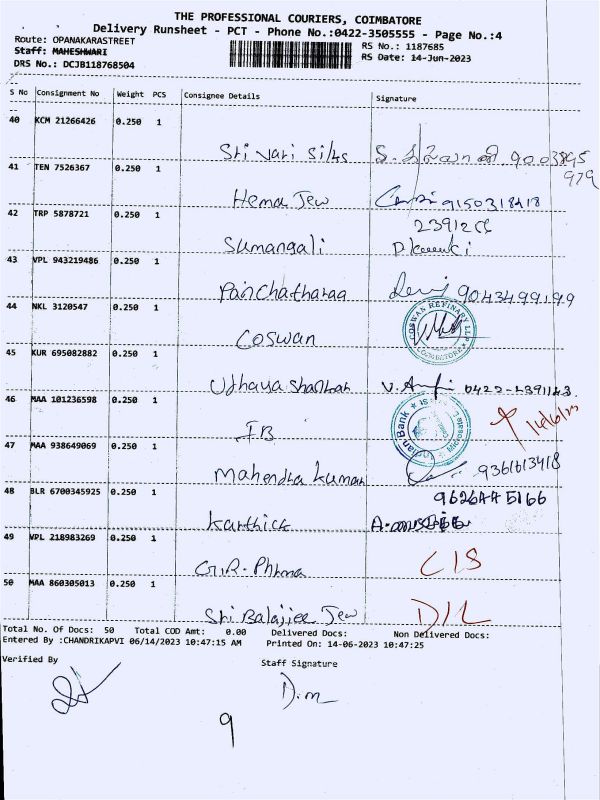 THE PROFESSIONAL COURIERS, COIMBATORE
Delivery Runsheet - PCT - Phone No.:0422-3505555 - Page No.:4
Route: OPANAKARASTREET
RS No.: 1187685
Staff: MAHESHWARI
RS Date: 14-Jun-2023
DRS No.: DCJB118768504
S No Consignment No Weight PCS Consignee Details Signature
40 KCM 21266426 0.250 1
Sri Vari Silks 9003845
979
41 TEN 7526367 0.250 1
Hema Jew 9150318418
42 TRP 5878721 0.250 1
Sumangali
43 VPL 943219486 0.250 1
Panchatharaa Devi 9043499199
44 NKL 3120547 0.250 1
Coswan COSWAN REFINARY LLP COIMBATORE
45 KUR 695082882 0.250 1
Udhaya Shankar
46 MAA 101236598 0.250 1
IB Indian Bank 14/6/23
47 MAA 938649069 0.250 1
Mahendra Kumar 9361613418
48 BLR 6700345925 0.250 1
9626445166
Karthick
49 VPL 218983269 0.250 1
G.R. Phrma CIS
50 MAA 860305013 0.250 1
Sri Balajiee Jew D/L
Total No. Of Docs: 50 Total COD Amt: 0.00 Delivered Docs: Non Delivered Docs:
Entered By :CHANDRIKAPVI 06/14/2023 10:47:15 AM Printed On: 14-06-2023 10:47:25
Verified By Staff Signature
D.m
9